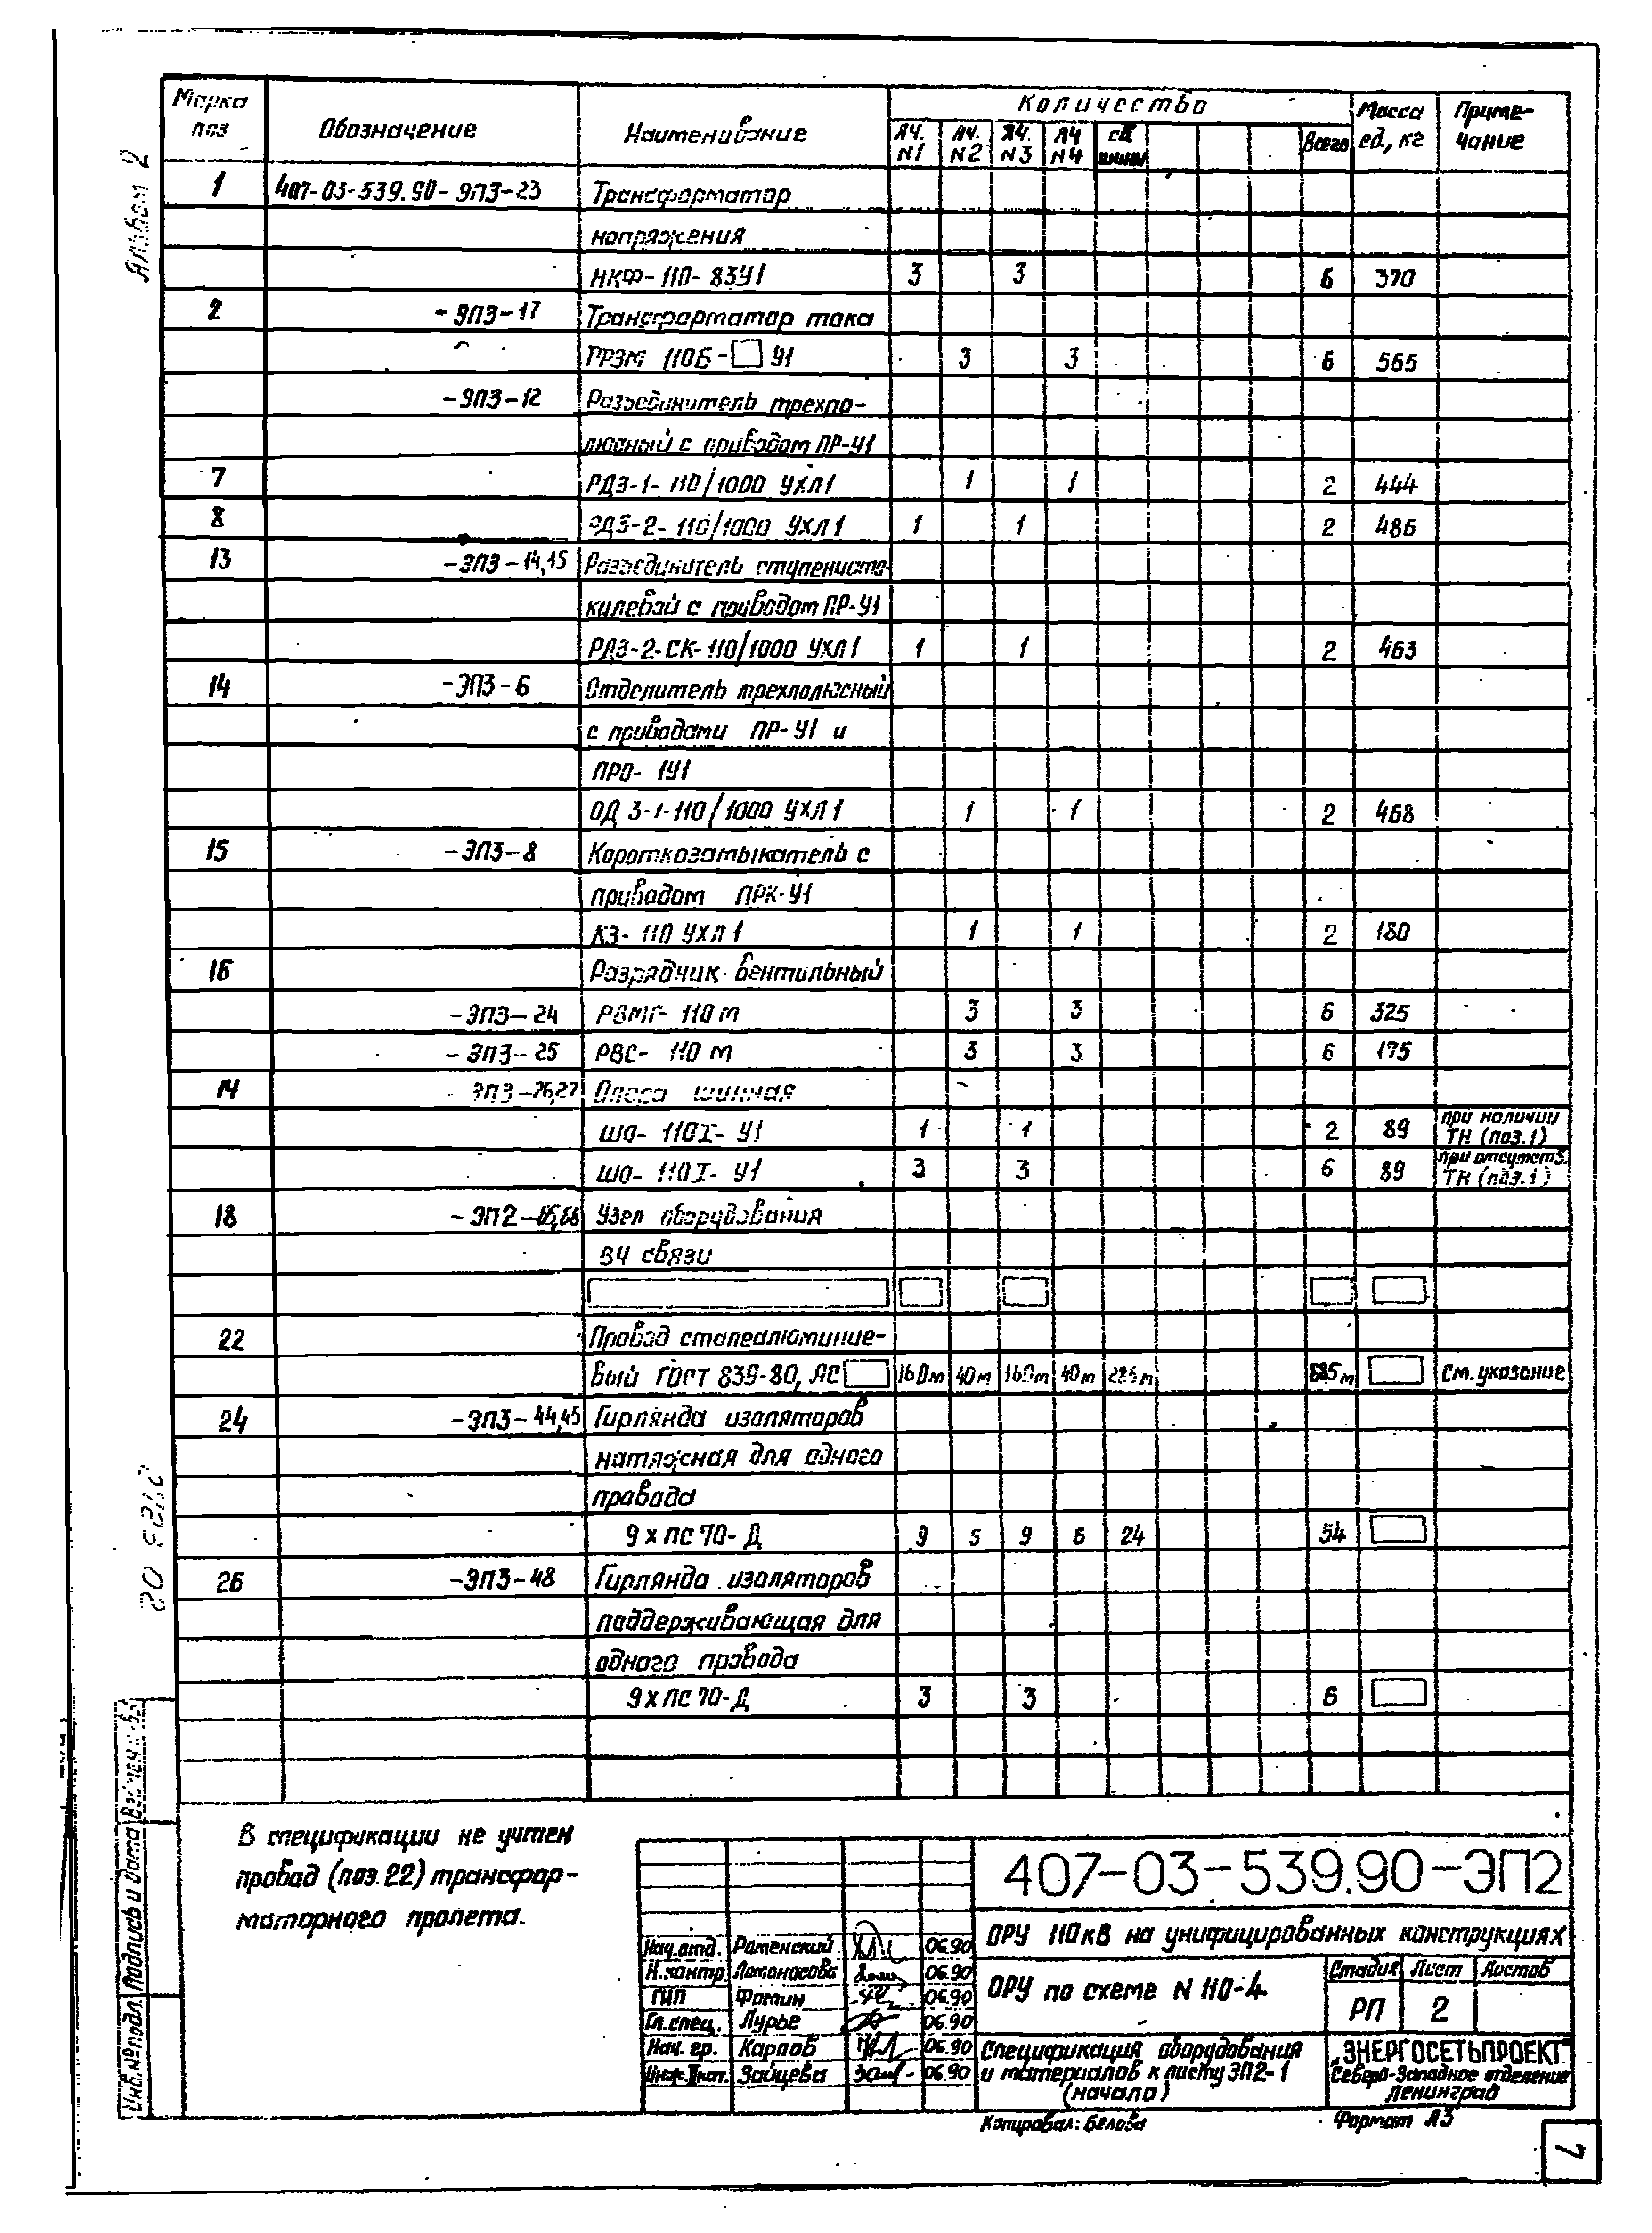 Альбом 2
Марка поз
Обозначение
Наименование
Количество
Масса ед, кг
Приме-чание
ЯЧ. N1
ЯЧ. N2
ЯЧ. N3
ЯЧ N4
сб шины
Всего
1 407-03-539.90-ЭП3-23 Трансформатор
напряжения
НКФ-110-83У1 3 3 6 370
2 -ЭП3-17 Трансформатор тока
110Б-□ У1 3 3 6 565
-ЭП3-12 Разъединитель трехпо-
люсный с приводом ПР-У1
7 РДЗ-1-110/1000 УХЛ1 1 1 2 444
8 РДЗ-2-110/1000 УХЛ1 1 1 2 486
13 -ЭП3-14,15 Разъединитель ступенчато
килевой с приводом ПР-У1
РДЗ-2-СК-110/1000 УХЛ1 1 1 2 463
14 -ЭП3-6 Отделитель трехполюсный
с приводами ПР-У1 и
ПРО-1У1
ОД З-1-110/1000 УХЛ1 1 1 2 468
15 -ЭП3-8 Короткозамыкатель с
приводом ПРК-У1
КЗ-110 УХЛ1 1 1 2 180
16 Разрядчик вентильный
-ЭП3-24 РВМГ-110м 3 3 6 325
-ЭП3-25 РВС-110м 3 3 6 175
14 -ЭП3-26,27 Опора шинная
ШО-110I-У1 1 1 2 89 при наличии ТН (поз.1)
ШО-110I-У1 3 3 6 89 при отсутств. ТН (поз.1)
18 -ЭП2-65,66 Узел оборудования
ВЧ связи
22 Провод сталеалюминие-
вый ГОСТ 839-80, АС□ 160м 40м 160м 40м 285м 685м См. указание
24 -ЭП3-44,45 Гирлянда изоляторов
натяжная для одного
провода
9хПС70-Д 9 6 9 6 24 54
26 -ЭП3-48 Гирлянда изоляторов
поддерживающая для
одного провода
9хПС70-Д 3 3 6
В спецификации не учтен
провод (поз.22) трансфор-
маторного пролета.
407-03-539.90-ЭП2
ОРУ 110кВ на унифицированных конструкциях
Нач.отд. Роменский 06.90
Н.контр. Ломоносова 06.90
ГИП Фомин 06.90
Гл.спец. Лурье 06.90
Нач. гр. Карпов 06.90
Зайцева 06.90
ОРУ по схеме N 110-4
Стадия Лист Листов
РП 2
Спецификация оборудования
и материалов к листу ЭП2-1
(начало)
„ЭНЕРГОСЕТЬПРОЕКТ"
Северо-Западное отделение
Ленинград
Копировал: Белова
Формат А3
7
Инв.№подл. Подпись и дата